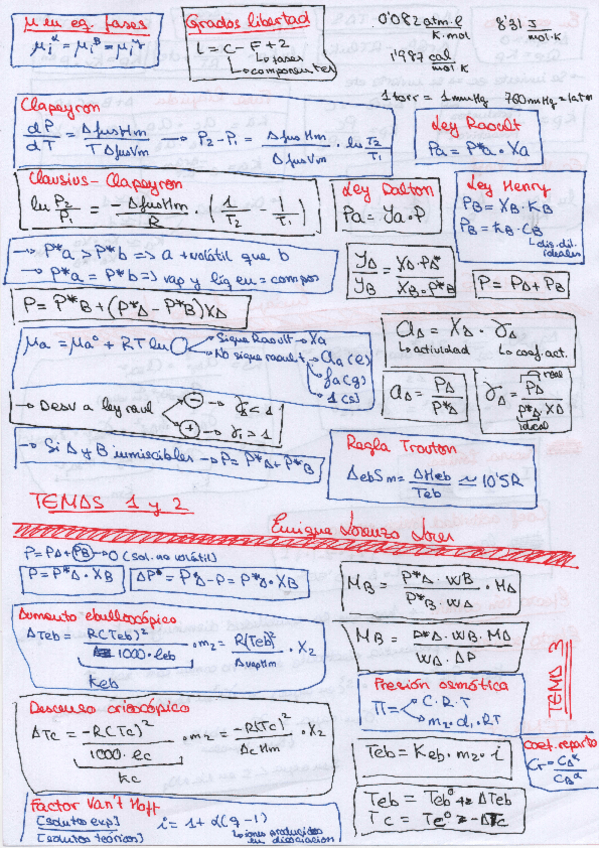 μ en eq. fases
μiᵅ = μiᵝ = μiᵞ
Grados libertad
L = C - F + 2
↳ fases
↳ componentes
0'082 atm·l / K·mol
8'31 J / mol·K
1'987 cal / mol·K
1 torr = 1 mmHg 760 mmHg = 1 atm
Clapeyron
dP/dT = ΔfusHm / TΔfusVm → P2 - P1 = ΔfusHm / ΔfusVm · ln T2/T1
Ley Raoult
Pa = P*a · Xa
Clausius - Clapeyron
ln P2/P1 = -ΔfusHm / R · (1/T2 - 1/T1)
Ley Dalton
Pa = Ya · P
Ley Henry
PB = XB · KB
PB = KB · CB
↳ dis. dil. ideales
→ P*a > P*b => a + volátil que b
→ P*a = P*b => vap y líq en = compos
YA/YB = XA · PA* / XB · P*B
P = PA + PB
P = P*B + (P*A - P*B) XA
μa = μa° + RT ln
Sigue Raoult → Xa
No sigue raoult → aa (l)
fa (g)
1 (s)
aA = XA · γA
↳ actividad ↳ coef. act.
→ Desv a ley raoul
⊖ → γi < 1
⊕ → γi > 1
aA = PA / P*A
γA = PA / P*A · XA
real
ideal
→ Si A y B inmiscibles → P = P*A + P*B
Regla Trouton
ΔebSm = ΔHeb / Teb ≃ 10'5R
TEMAS 1 y 2
Enrique Lorenzo
P = PA + PB → 0 (sol. no volátil)
P = P*A · XB
ΔP* = P*A - P = P*A · XB
MB = P*A · WB / P*B · WA · MA
Aumento ebulloscópico
ΔTeb = R(Teb)² / 1000 · leb · m2 = R(Teb)² / ΔvapHm · X2
Keb
MB = P*A · WB · MA / WA · ΔP
TEMA 3
Presión osmótica
Π = C·R·T
m2 · d1 · RT
Descenso crioscópico
ΔTc = -R(Tc)² / 1000 · lc · m2 = -R(Tc)² / ΔcHm · X2
Kc
Teb = Keb · m2 · i
Coef. reparto
Cr = CAᵅ
Factor Van't Hoff
[solutos exp]
[solutos teóricos]
i = 1 + α(q - 1)
↳ iones producidos en disociación
Teb = Teb° + ΔTeb
Tc = Tc° - ΔTc